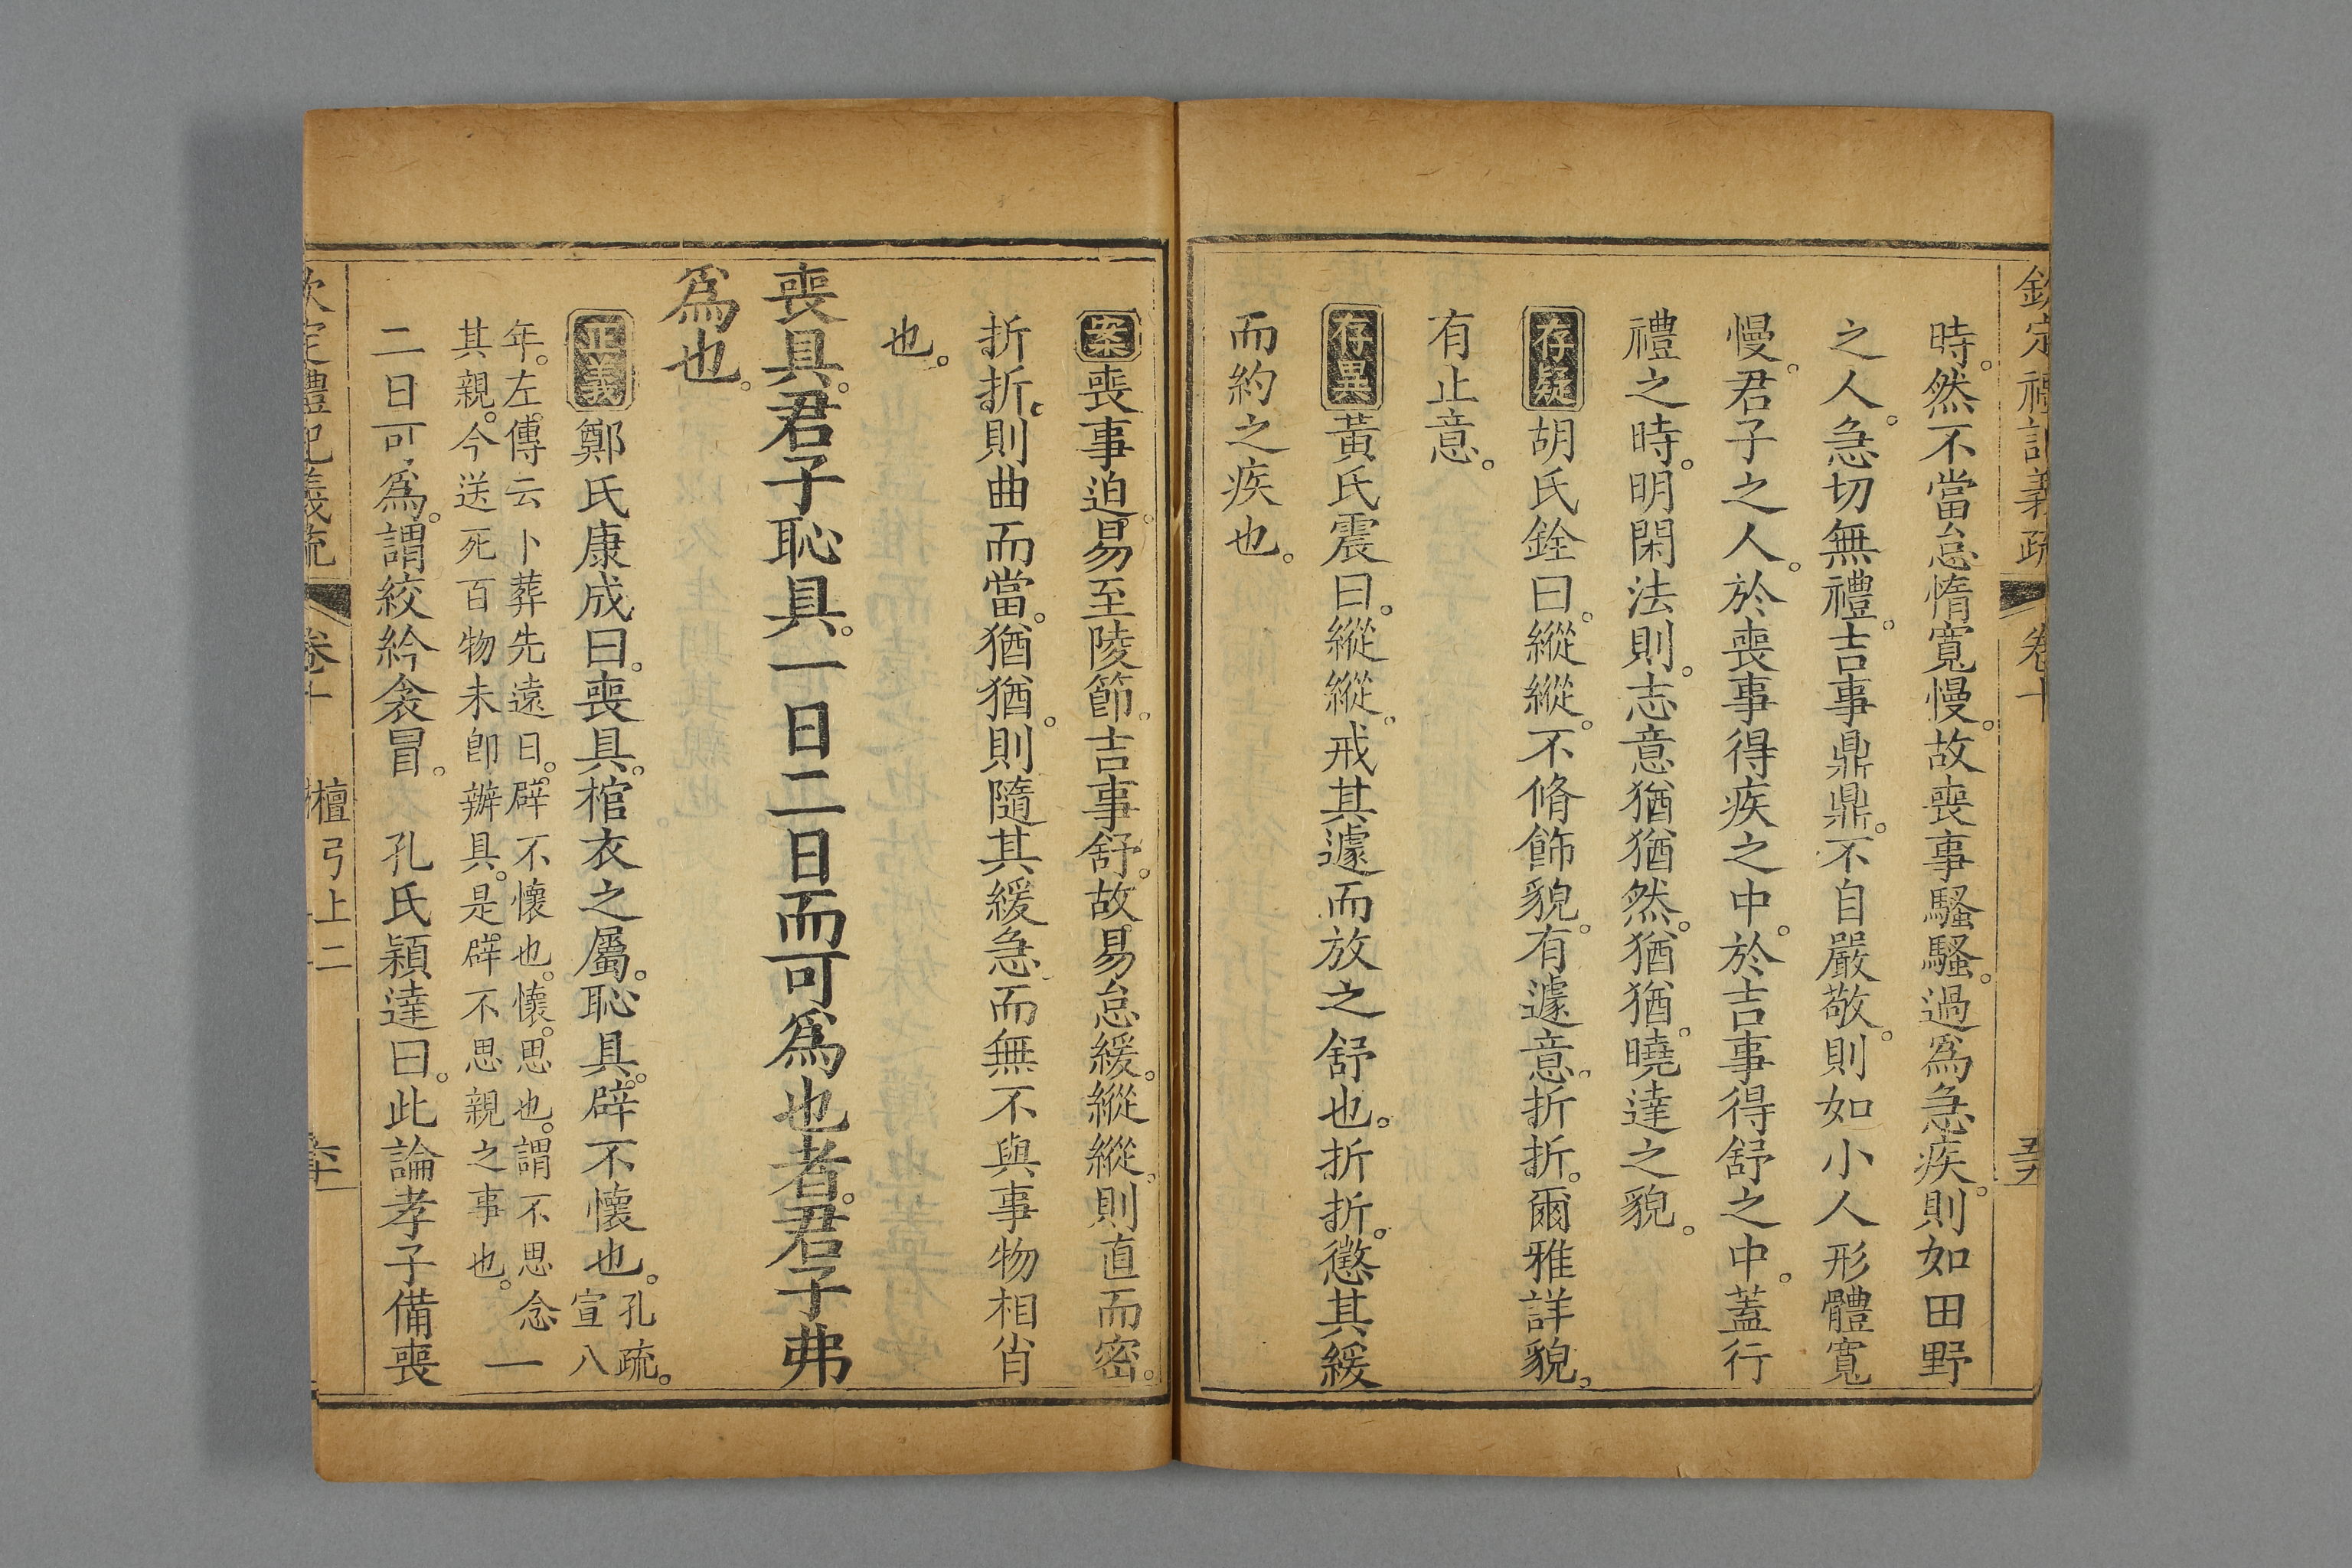 欽定禮記義疏 卷十
時。然不當怠惰寬慢。故喪事騷騷。過爲急疾。則如田野
之人。急切無禮。吉事鼎鼎。不自嚴敬。則如小人形體寬
慢。君子之人。於喪事得疾之中。於吉事得舒之中。蓋行
禮之時。明閑法則。志意猶猶然。猶猶。曉達之貌。
存疑 胡氏銓曰。縱縱。不脩飾貌。有遽意。折折。爾雅詳貌。
有止意。
存異 黃氏震曰。縱縱。戒其遽而放之舒也。折折。懲其緩
而約之疾也。
案 喪事迫。易至陵節。吉事舒。故易怠緩。縱縱。則直而密。
折折。則曲而當。猶猶。則隨其緩急。而無不與事物相肖
也。
喪具。君子恥具。一日二日而可爲也者。君子弗
爲也。
正義 鄭氏康成曰。喪具。棺衣之屬。恥具。辟不懷也。孔疏。
宣八
年。左傳云卜葬先遠日。辟不懷也。懷。思也。謂不思念
其親。今送死百物未卽辦具。是辟不思親之事也。 一
二日可爲。謂絞紟衾冒。 孔氏穎達曰。此論孝子備喪
欽定禮記義疏 卷十 檀弓上二